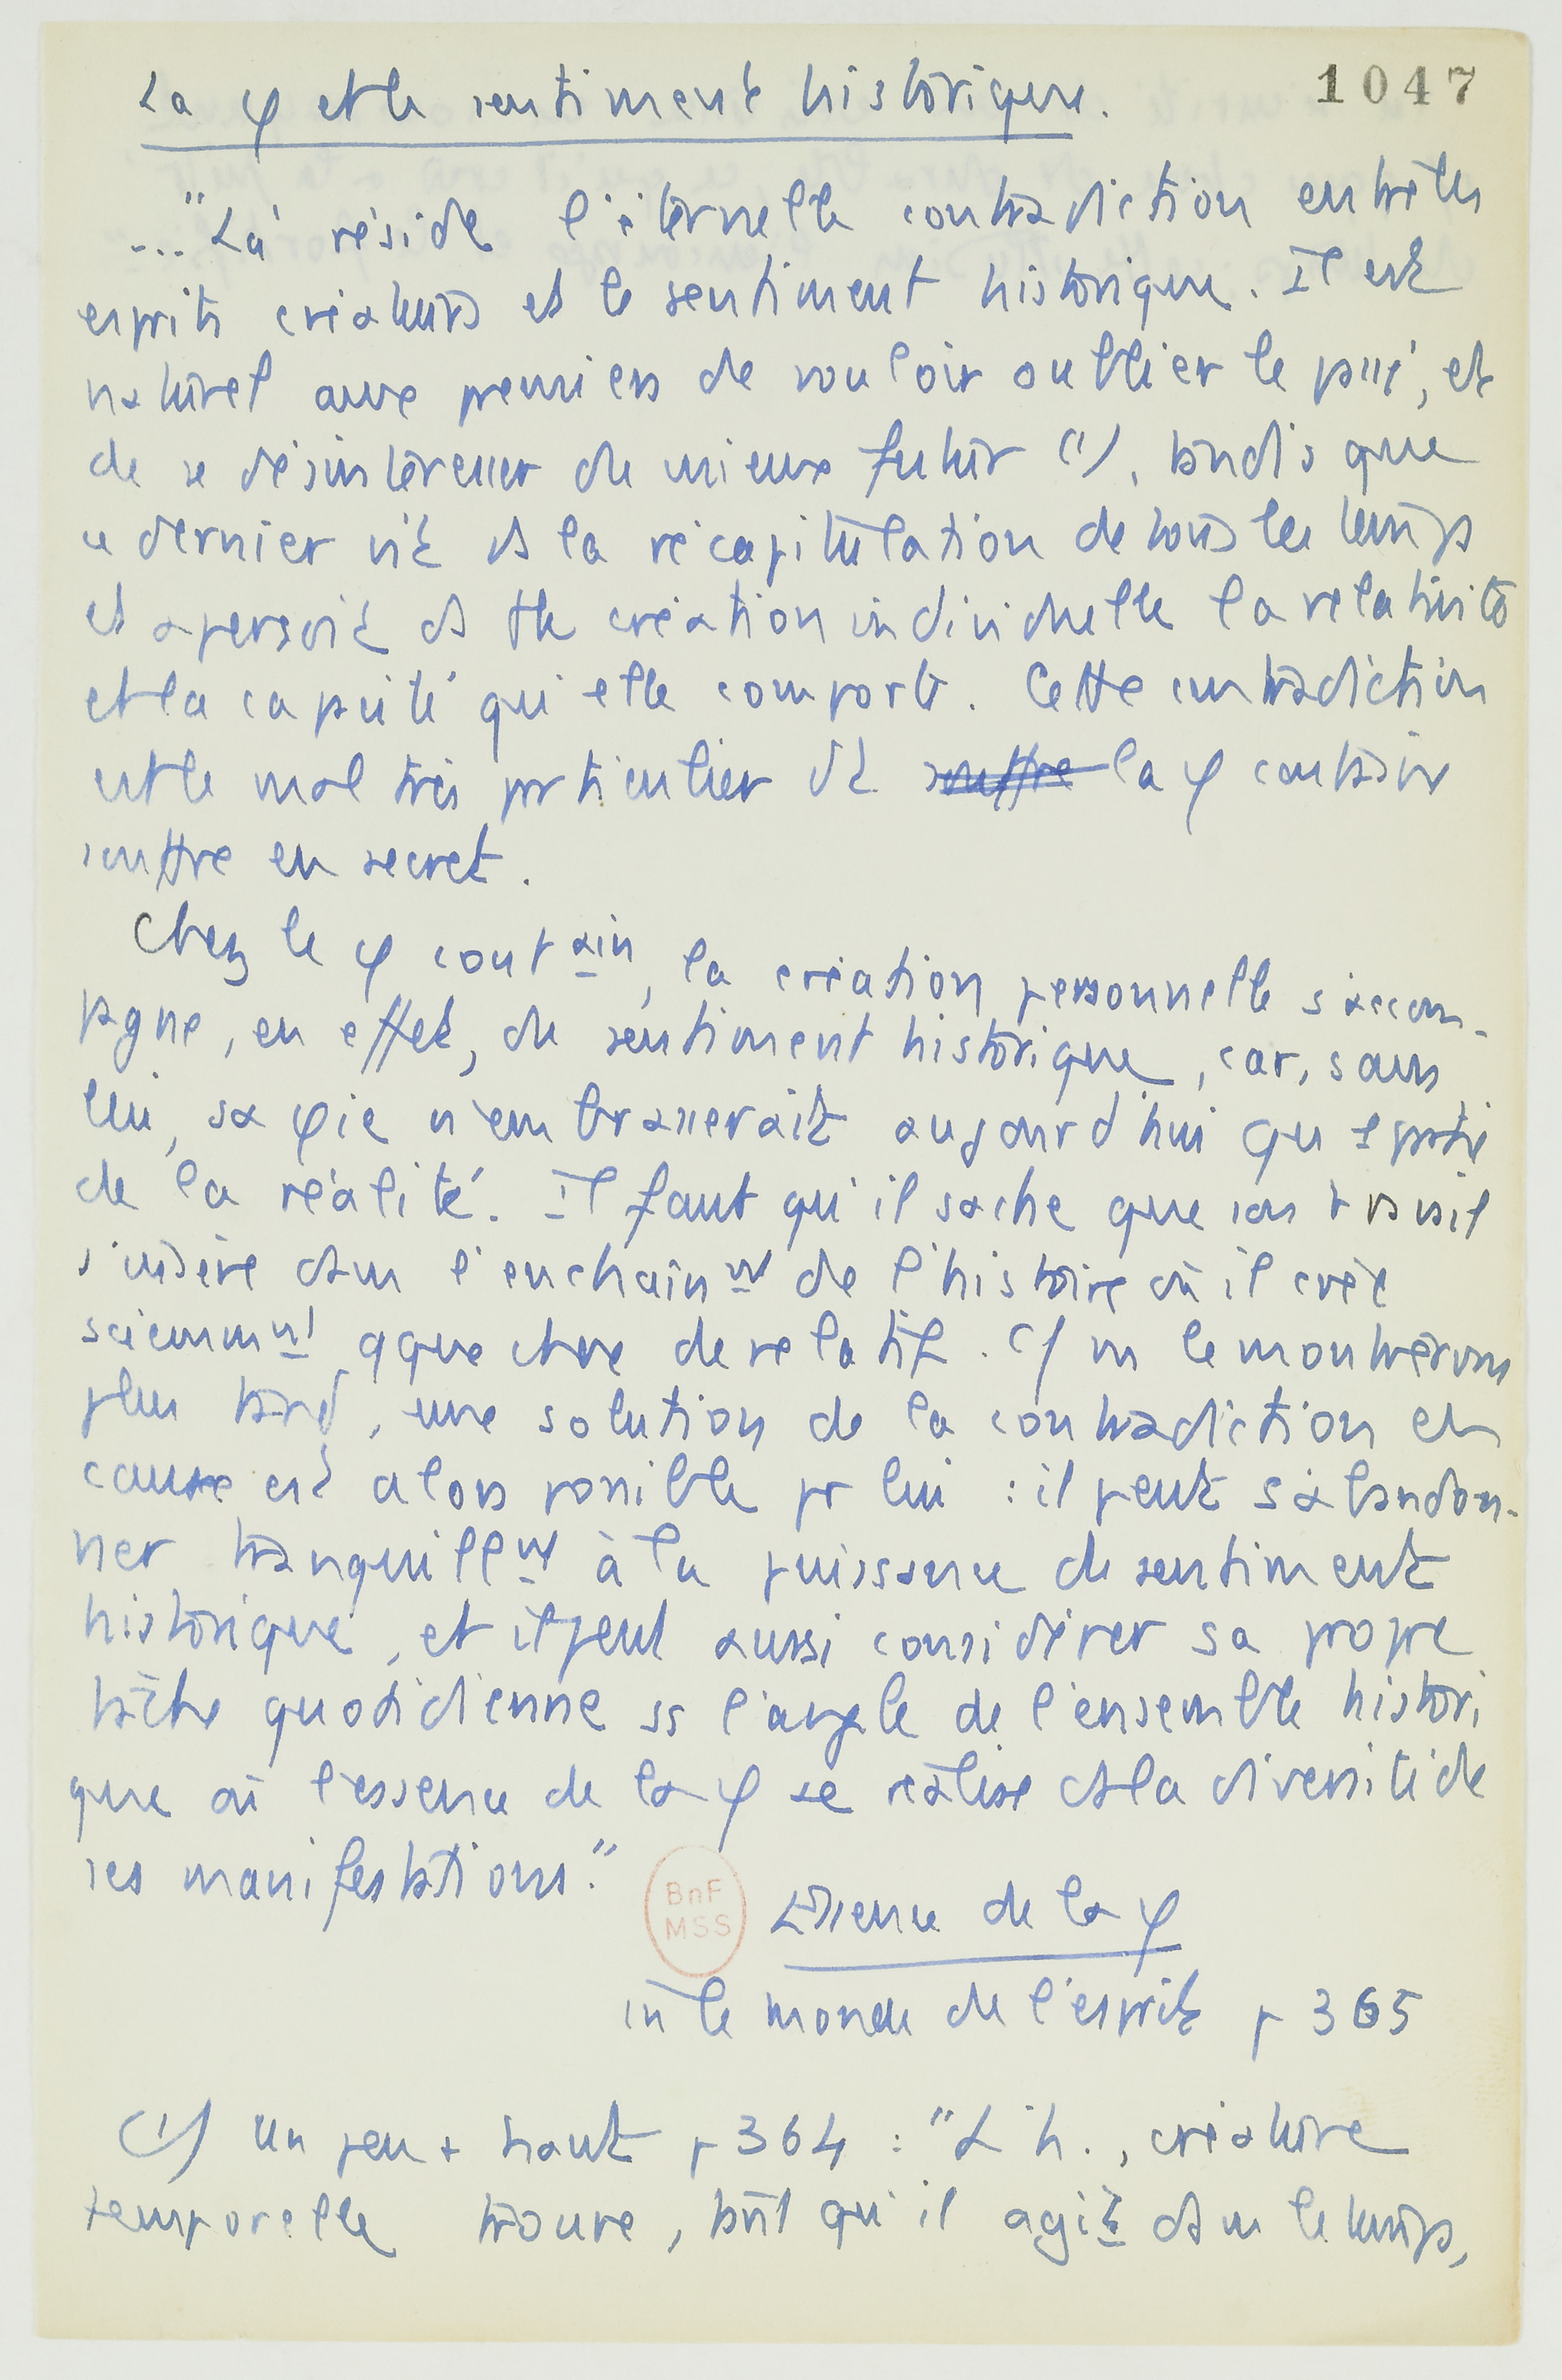 La φ et le sentiment historique.
1047
..."Là réside l'éternelle contradiction entre les
esprits créateurs et le sentiment historique. Il est
naturel aux premiers de vouloir oublier le passé, et
de se désintéresser du mieux futur (1), tandis que
ce dernier vit ds la récapitulation de tous les temps
et aperçoit ds tte création individuelle la relativité
et la caducité qu'elle comporte. Cette contradiction
est le mal très particulier dt souffre la φ contain
souffre en secret.
Chez le φ contain, la création personnelle s'accom-
pagne, en effet, du sentiment historique, car, sans
lui, sa φie n'embrasserait aujourd'hui qu'1 partie
de la réalité. Il faut qu'il sache que son travail
s'insère dans l'enchaînnt de l'histoire où il crée
sciemmnt qque chose de relatif. Cf ns le montrerons
plus tard, une solution de la contradiction en
cause est alors possible pr lui : il peut s'abandon-
ner tranquillnt à la puissance du sentiment
historique, et il peut aussi considérer sa propre
tâche quotidienne ss l'angle de l'ensemble histori
que où l'essence de la φ se réalise ds la diversité de
ses manifestations."
BnF
MSS
L'Essence de la φ
in le monde de l'esprit p 365
(1) Un peu + haut p 364 : "L'h., créature
temporelle trouve, tant qu'il agit dans le temps,